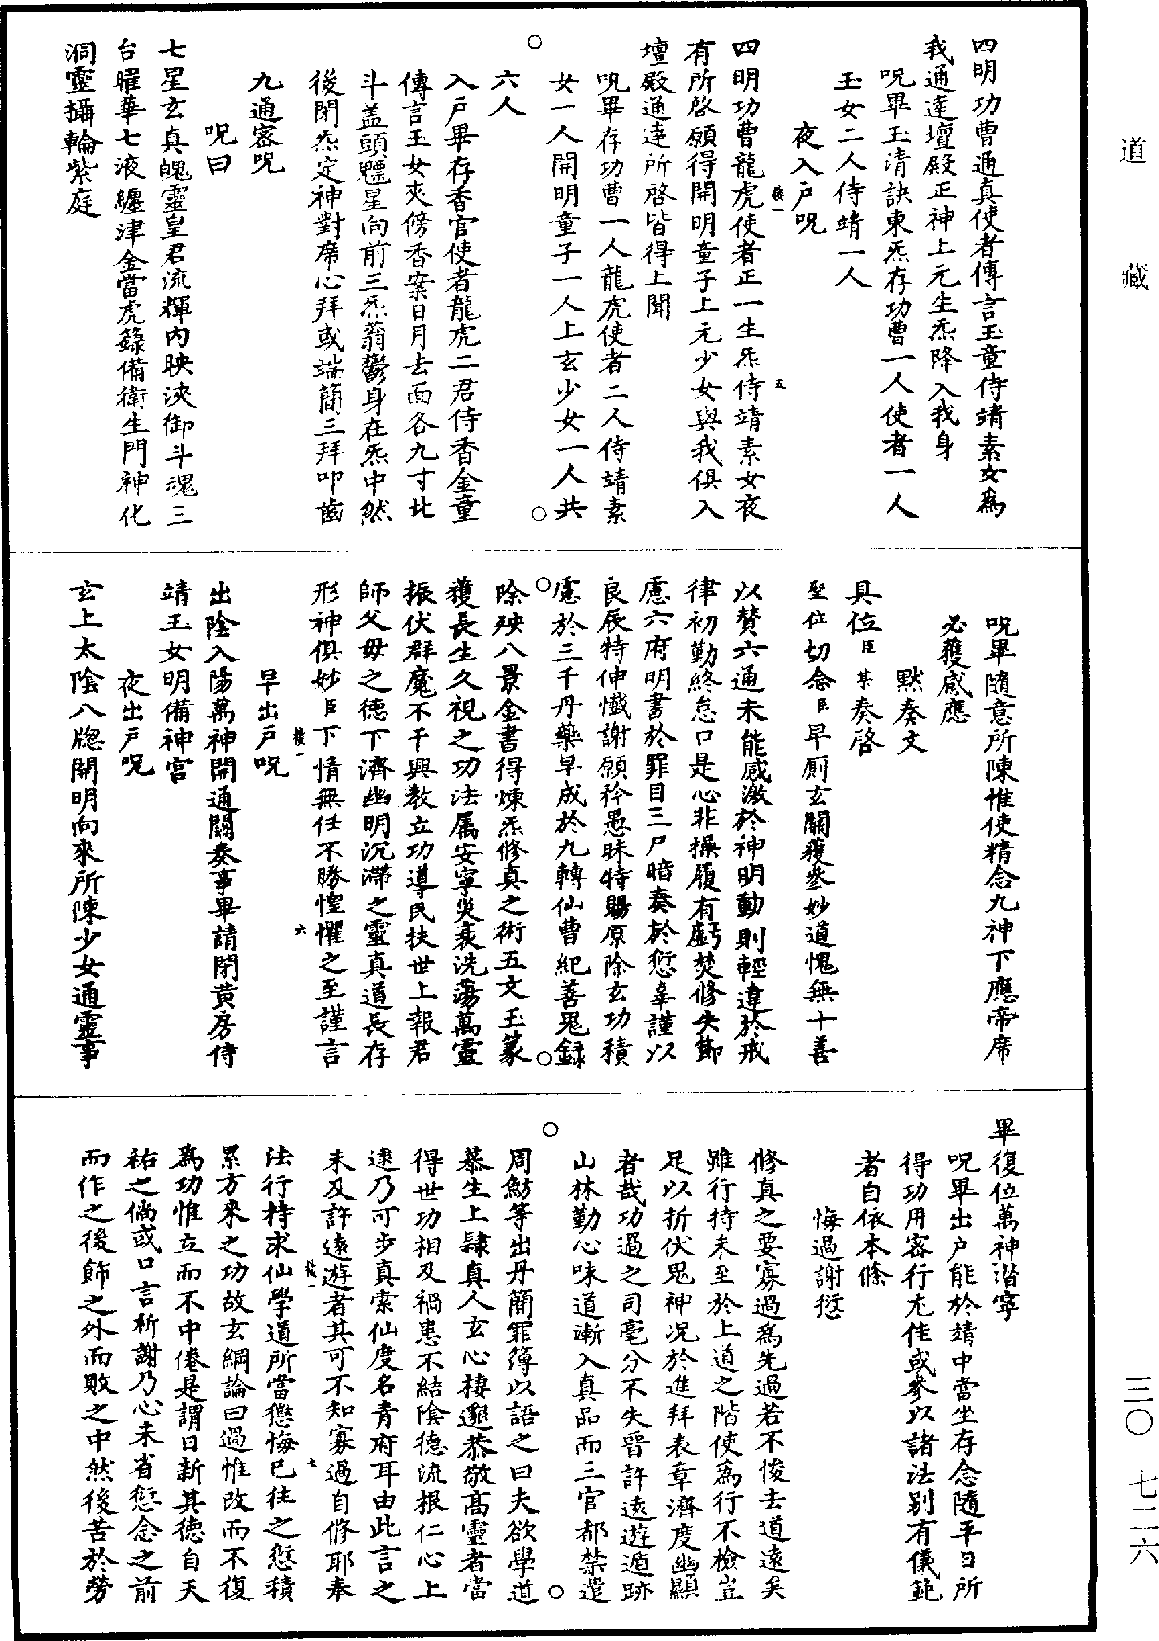 四明功曹通真使者傳言玉童侍靖素女為
我通達壇殿正神上元生炁降入我身
呪畢玉清訣東炁存功曹一人使者一人
玉女二人侍靖一人
夜入戶呪
四明功曹龍虎使者正一生炁侍靖素女夜
有所啓願得開明童子上元少女與我俱入
壇殿通達所啓皆得上聞
呪畢存功曹一人龍虎使者二人侍靖素
女一人開明童子一人上玄少女一人共
六人
入戶畢存香官使者龍虎二君侍香金童
傳言玉女夾傍香案日月去面各九寸北
斗蓋頭魒星向前三炁蓊鬱身在炁中然
後閉炁定神對席心拜或端簡三拜叩齒
九通密呪
呪曰
七星玄真魄靈皇君流輝內映浹御斗魂三
台曜華七液纏津金當虎籙備衛生門神化
洞靈攝輪紫庭
呪畢隨意所陳惟使精念九神下應帝席
必獲感應
默奏文
具位臣某奏啓
聖位切念臣早廁玄關獲參妙道愧無十善
以贊六通未能感激於神明動則輕違於戒
律初勤終怠口是心非操履有虧焚修失節
慮六府明書於罪目三尸暗奏於愆辜謹以
良辰特伸懺謝願矜愚昧特賜原除玄功積
慮於三千丹藥早成於九轉仙曹紀善鬼錄
除殃八景金書得煉炁修真之術五文玉篆
獲長生久視之功法屬安寧災衰洗蕩萬靈
振伏群魔不干興教立功導民扶世上報君
師父母之德下濟幽明沉滯之靈真道長存
形神俱妙臣下情無任不勝惶懼之至謹言
早出戶呪
出陰入陽萬神開通關奏事畢請閉黃房侍
靖玉女明備神宮
夜出戶呪
玄上太陰八牎開明向來所陳少女通靈事
畢復位萬神諧寧
呪畢出戶能於靖中當坐存念隨平日所
得功用密行尤佳或參以諸法別有儀軌
者自依本條
悔過謝愆
修真之要寡過為先過若不悛去道遠矣
雖行持未至於上道之階使為行不檢豈
足以折伏鬼神況於進拜表章濟度幽顯
者哉功過之司毫分不失晉許遠遊遁跡
山林勤心味道漸入真品而三官都禁遣
周魴等出丹簡罪簿以語之曰夫欲學道
慕生上隸真人玄心棲邈恭敬高靈者當
得世功相及禍患不結陰德流根仁心上
逮乃可步真索仙度名青府耳由此言之
未及許遠遊者其可不知寡過自修耶奉
法行持求仙學道所當懲悔已往之愆積
累方來之功故玄綱論曰過惟改而不復
為功惟立而不中倦是謂日新其德自天
祐之倘或口言祈謝乃心未省愆念之前
而作之後飾之外而敗之中然後苦於勞
道藏
三〇 七二六